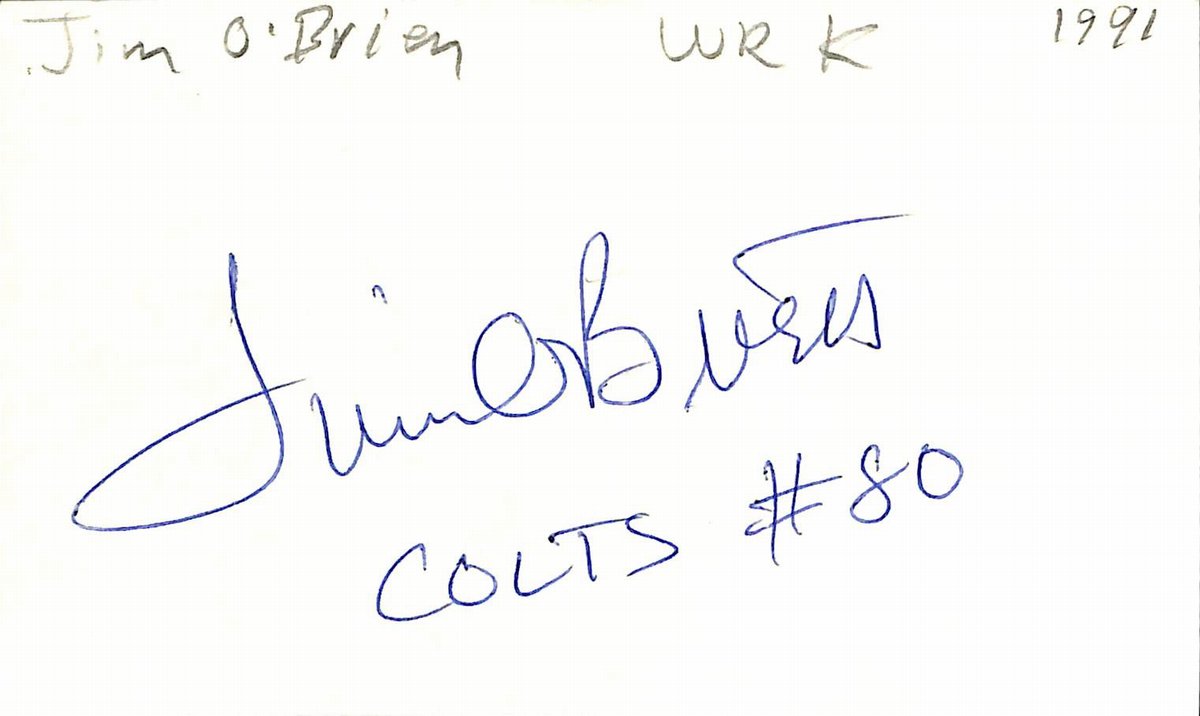 Jim O'Brien WR K 1991
Jim O'Brien
COLTS #80